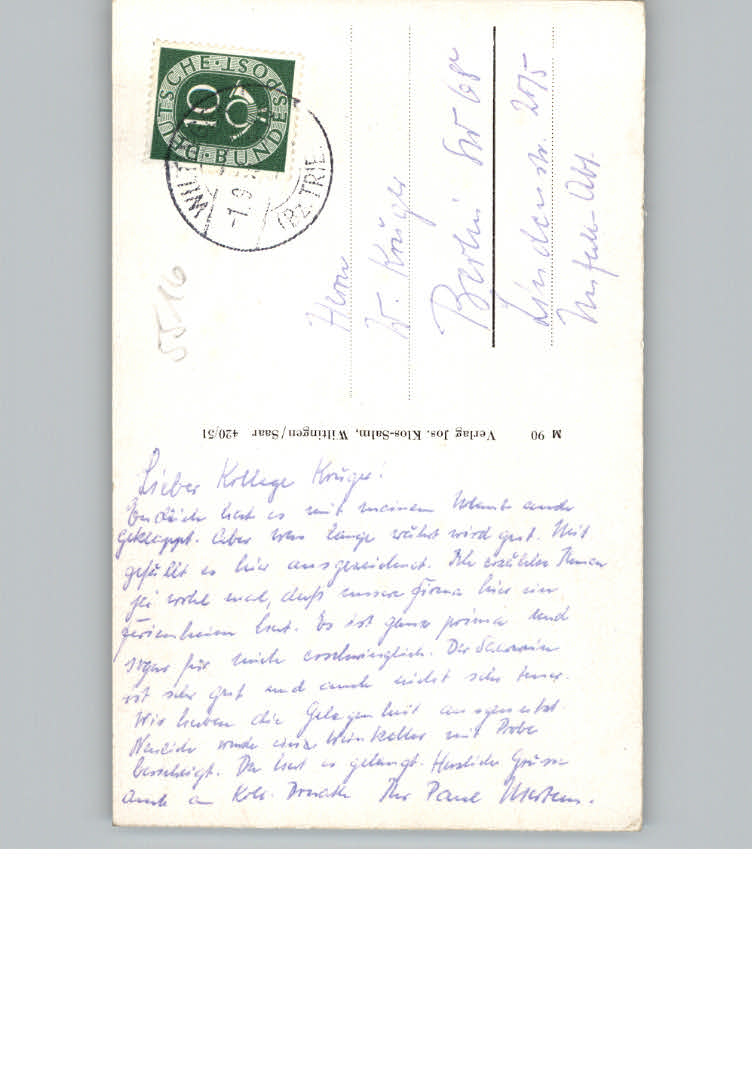 DEUTSCHE BUNDESPOST
10
WILTIN
-1.9
(BZ. TRIE
5516
Herrn
W. Krüger
Berlin SW 68
Lindenstr. 20/5
Unfall-Abt.
M 90 Verlag Jos. Klos-Salm, Wiltingen/Saar 420/51
Lieber Kollege Krüger!
Endlich hat es mit meinem Urlaub auch
geklappt. Aber was lange währt wird gut. Mir
gefällt es hier ausgezeichnet. Ich erzählte Ihnen
ja wohl mal, daß unsere Firma hier ein
Ferienheim hat. Es ist ganz prima und
sogar für mich erschwinglich. Der Saarwein
ist sehr gut und auch nicht sehr teuer.
Wir haben die Gelegenheit ausgenutzt.
Neulich wurde einer Weinkeller mit Probe
besichtigt. Da hat es gelangt. Herzliche Grüsse
auch an Koll. Ihr Paul Mertens.